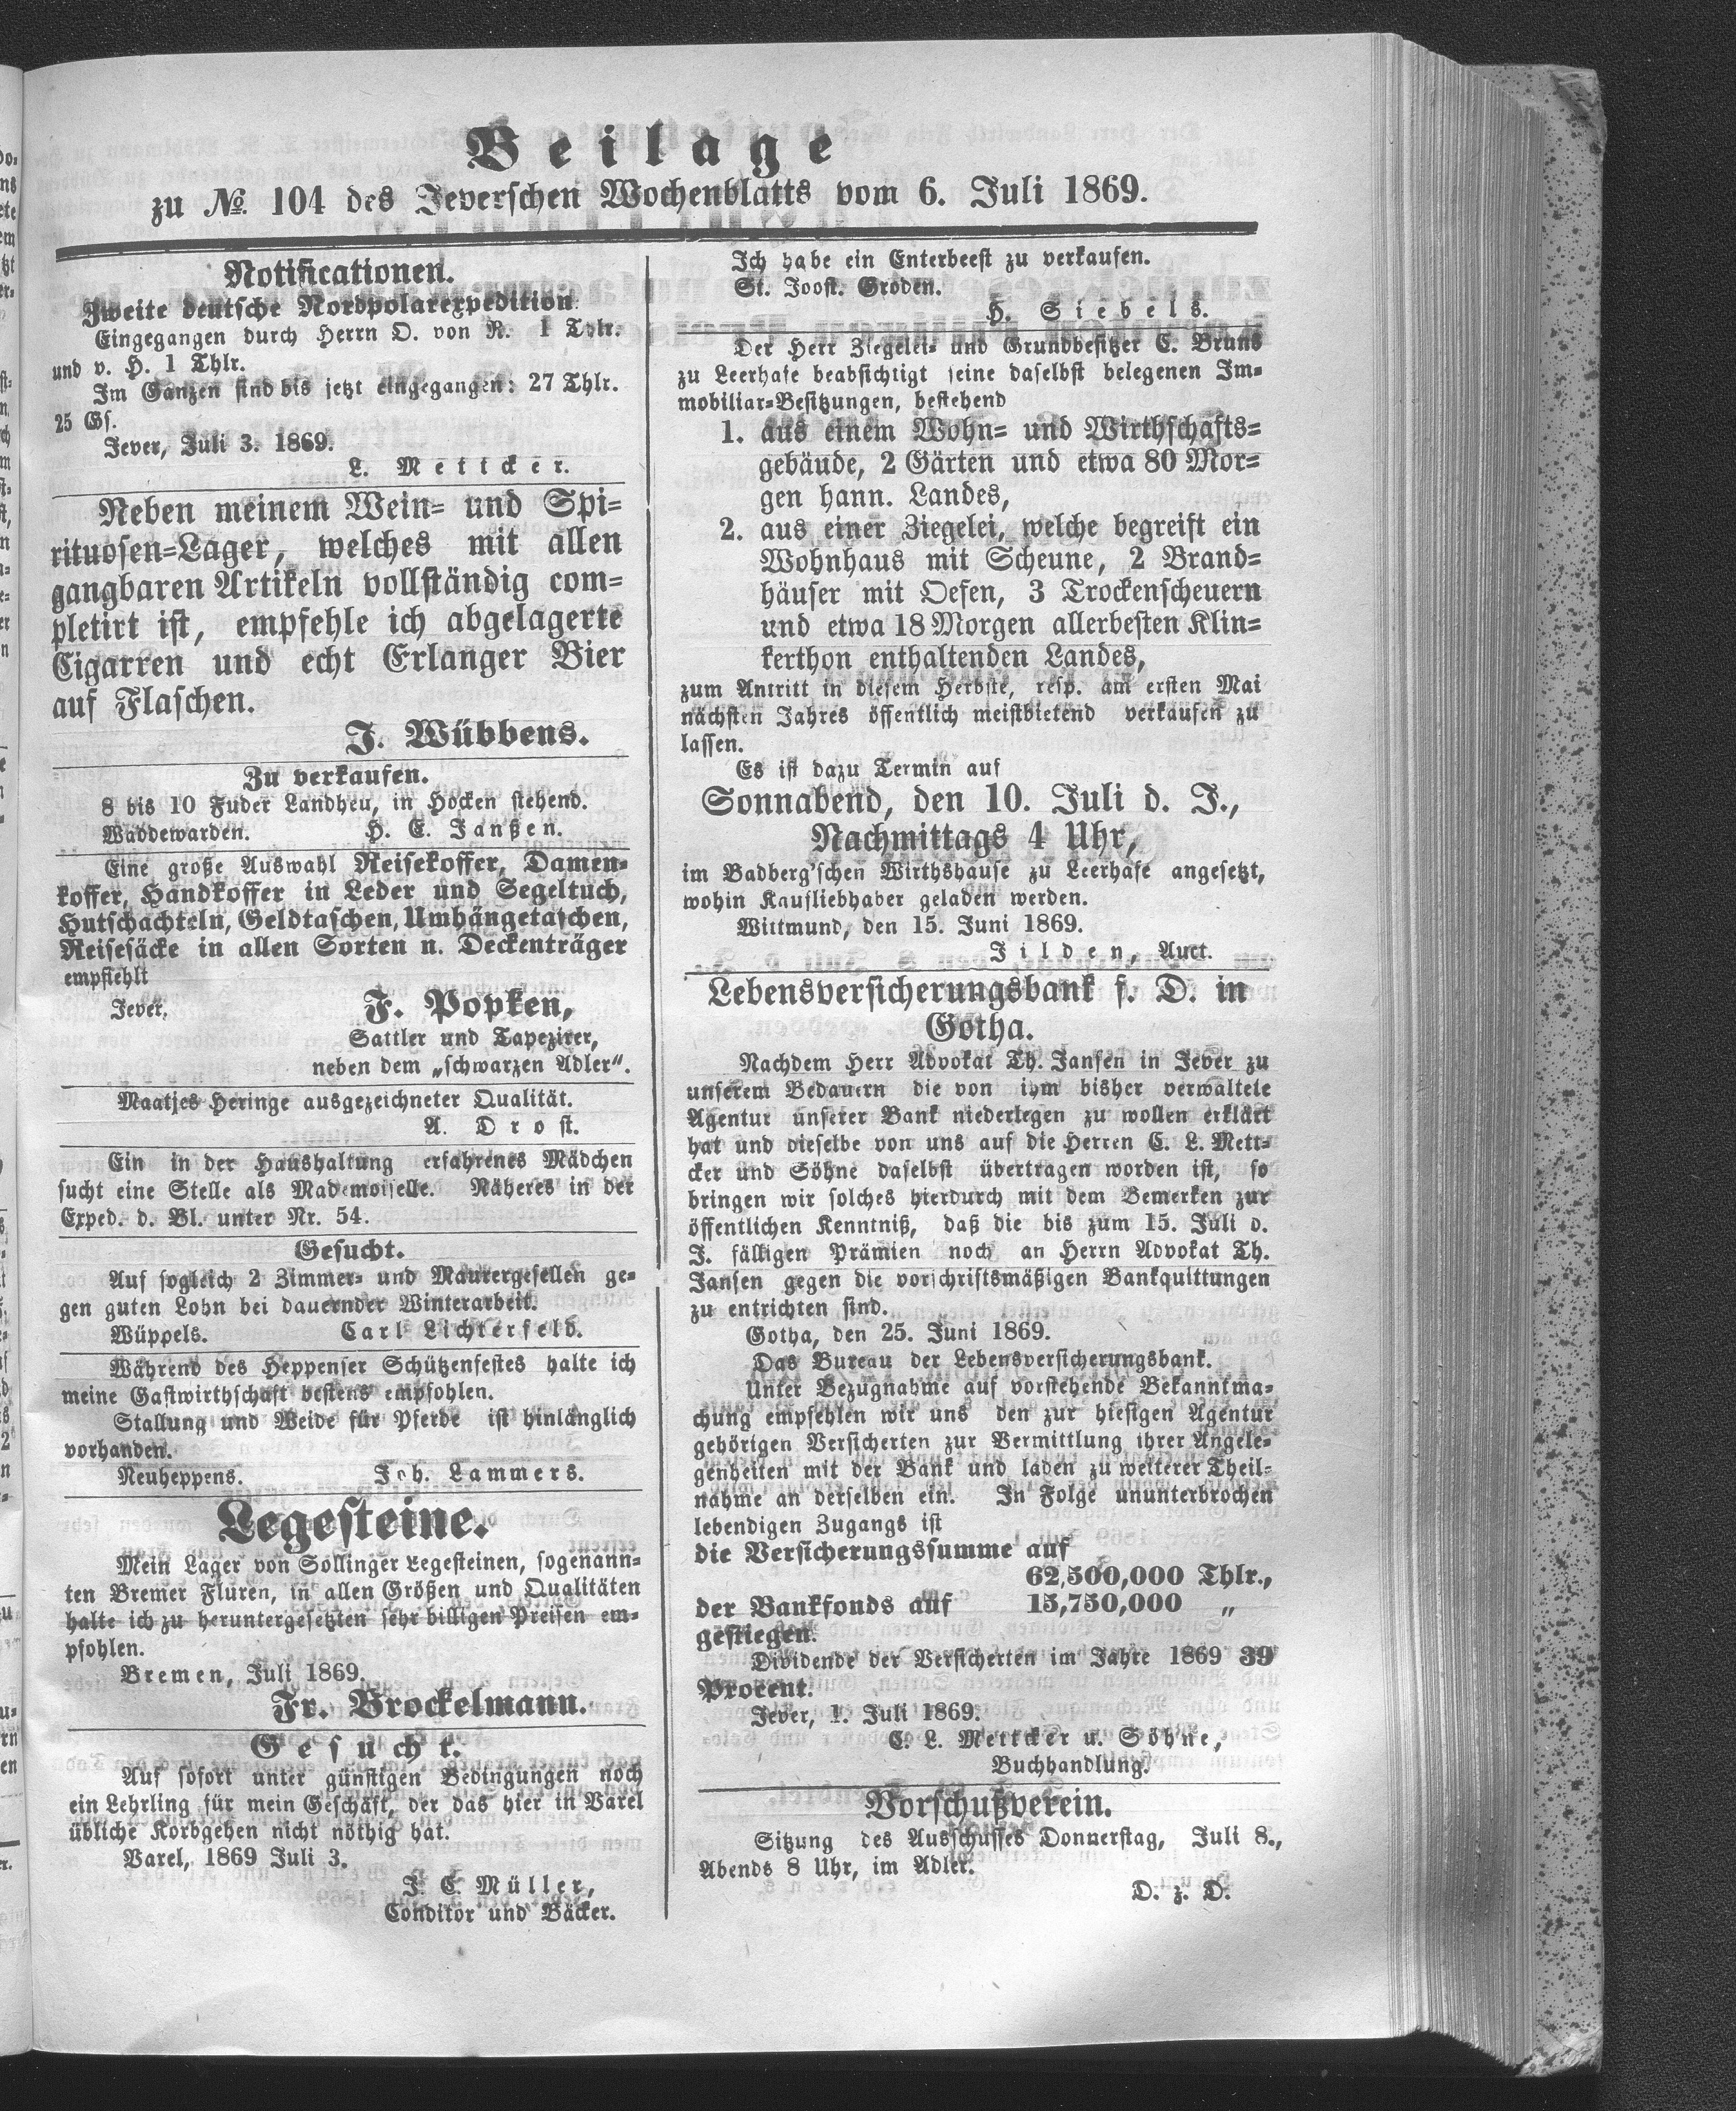 Beilage
zu No. 104 des Jeverschen Wochenblatts vom 6. Juli 1869.
Notificationen.
Zweite deutsche Nordpolarexpedition.
Eingegangen durch Herrn O. von R. 1 Thlr.
und v. H. 1 Thlr.
Im Ganzen sind bis jetzt eingegangen: 27 Thlr.
25 Gs.
Jever, Juli 3. 1869.
L. Mettcker.
Neben meinem Wein- und Spi-
rituosen-Lager, welches mit allen
gangbaren Artikeln vollständig com-
pletirt ist, empfehle ich abgelagerte
Cigarren und echt Erlanger Bier
auf Flaschen.
J. Wübbens.
Zu verkaufen.
8 bis 10 Fuder Landheu, in Hocken stehend.
Waddewarden. H. E. Janßen.
Eine große Auswahl Reisekoffer, Damen-
koffer, Handkoffer in Leder und Segeltuch,
Hutschachteln, Geldtaschen, Umhängetaschen,
Reisesäcke in allen Sorten n. Deckenträger
empfiehlt
Jever. F. Popken,
Sattler und Tapezirer,
neben dem „schwarzen Adler“.
Maatjes Heringe ausgezeichneter Qualität.
A. Drost.
Ein in der Haushaltung erfahrenes Mädchen
sucht eine Stelle als Mademoiselle. Näheres in der
Exped. d. Bl. unter Nr. 54.
Gesucht.
Auf sogleich 2 Zimmer- und Maurergesellen ge-
gen guten Lohn bei dauernder Winterarbeit.
Wüppels. Carl Lichterfeld.
Während des Heppenser Schützenfestes halte ich
meine Gastwirthschaft bestens empfohlen.
Stallung und Weide für Pferde ist hinlänglich
vorhanden.
Neuheppens. Joh. Lammers.
Legesteine.
Mein Lager von Sollinger Legesteinen, sogenann-
ten Bremer Fluren, in allen Größen und Qualitäten
halte ich zu heruntergesetzten sehr billigen Preisen em-
pfohlen.
Bremen, Juli 1869.
Fr. Brockelmann.
Gesucht.
Auf sofort unter günstigen Bedingungen noch
ein Lehrling für mein Geschäft, der das hier in Varel
übliche Korbgehen nicht nöthig hat.
Varel, 1869 Juli 3.
J. C. Müller,
Conditor und Bäcker.
Ich habe ein Enterbeest zu verkaufen.
St. Joost. Groden.
H. Siebels.
Der Herr Ziegelei- und Grundbesitzer C. Bruns
zu Leerhafe beabsichtigt seine daselbst belegenen Im-
mobiliar-Besitzungen, bestehend
1. aus einem Wohn- und Wirthschafts-
gebäude, 2 Gärten und etwa 80 Mor-
gen hann. Landes,
2. aus einer Ziegelei, welche begreift ein
Wohnhaus mit Scheune, 2 Brand-
häuser mit Oefen, 3 Trockenscheuern
und etwa 18 Morgen allerbesten Klin-
kerthon enthaltenden Landes,
zum Antritt in diesem Herbste, resp. am ersten Mai
nächsten Jahres öffentlich meistbietend verkaufen zu
lassen.
Es ist dazu Termin auf
Sonnabend, den 10. Juli d. J.,
Nachmittags 4 Uhr,
im Badberg'schen Wirthshause zu Leerhafe angesetzt,
wohin Kaufliebhaber geladen werden.
Wittmund, den 15. Juni 1869.
Jilden, Auct.
Lebensversicherungsbank f. D. in
Gotha.
Nachdem Herr Advokat Th. Jansen in Jever zu
unserem Bedauern die von ihm bisher verwaltete
Agentur unserer Bank niederlegen zu wollen erklärt
hat und dieselbe von uns auf die Herren C. L. Mett-
cker und Söhne daselbst übertragen worden ist, so
bringen wir solches hierdurch mit dem Bemerken zur
öffentlichen Kenntniß, daß die bis zum 15. Juli d.
J. fälligen Prämien noch an Herrn Advokat Th.
Jansen gegen die vorschriftsmäßigen Bankquittungen
zu entrichten sind.
Gotha, den 25. Juni 1869.
Das Bureau der Lebensversicherungsbank.
Unter Bezugnahme auf vorstehende Bekanntma-
chung empfehlen wir uns den zur hiesigen Agentur
gehörigen Versicherten zur Vermittlung ihrer Angele-
genheiten mit der Bank und laden zu weiterer Theil-
nahme an derselben ein. In Folge ununterbrochen
lebendigen Zugangs ist
die Versicherungssumme auf
62,500,000 Thlr.,
der Bankfonds auf 15,750,000 „
gestiegen.
Dividende der Versicherten im Jahre 1869 39
Procent.
Jever, 1. Juli 1869.
C. L. Mettcker u. Söhne,
Buchhandlung.
Vorschußverein.
Sitzung des Ausschusses Donnerstag, Juli 8.,
Abends 8 Uhr, im Adler.
D. z. D.